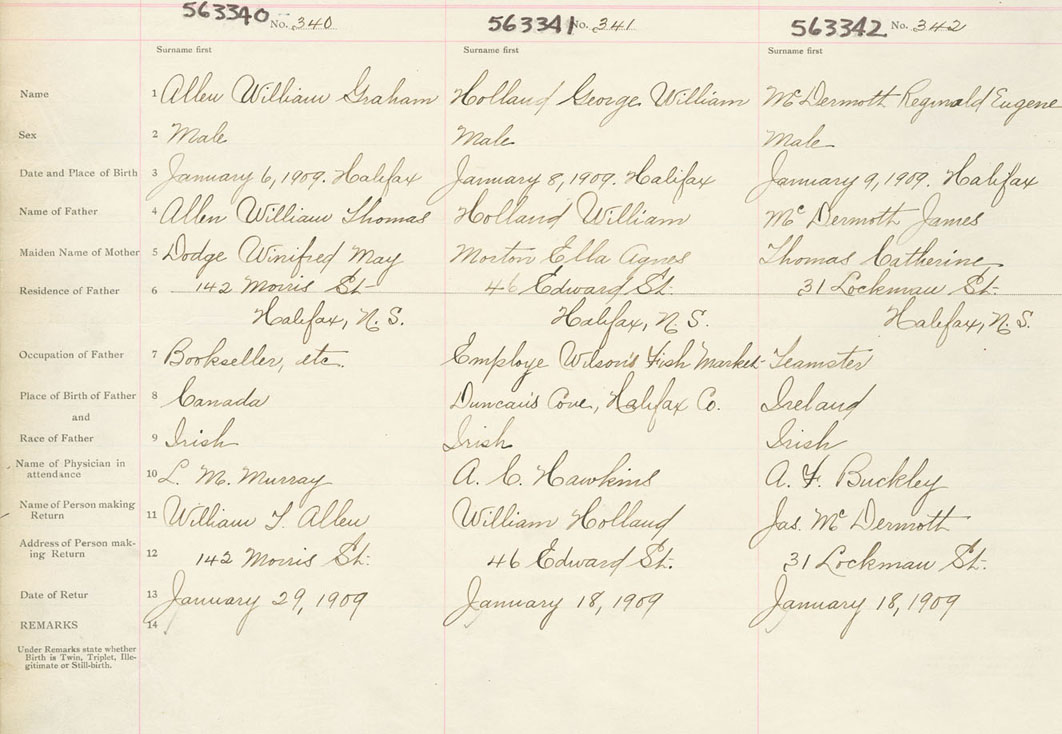 563340 No. 340 563341 No. 341 563342 No. 342
Surname first Surname first Surname first
Name 1 Allen William Graham Holland George William McDermoth Reginald Eugene
Sex 2 Male Male Male
Date and Place of Birth 3 January 6, 1909. Halifax January 8, 1909. Halifax January 9, 1909. Halifax
Name of Father 4 Allen William Thomas Holland William McDermoth James
Maiden Name of Mother 5 Dodge Winifred May Morton Ella Agnes Thomas Catherine
Residence of Father 6 142 Morris St. 46 Edward St. 31 Lockman St.
Halifax, N.S. Halifax, N.S. Halifax, N.S.
Occupation of Father 7 Bookseller, etc. Employe Wilson's Fish Market Teamster
Place of Birth of Father 8 Canada Duncan's Cove, Halifax Co. Ireland
and
Race of Father 9 Irish Irish Irish
Name of Physician in
attendance 10 L. M. Murray A. C. Hawkins A. F. Buckley
Name of Person making
Return 11 William T. Allen William Holland Jas. McDermoth
Address of Person mak-
ing Return 12 142 Morris St. 46 Edward St. 31 Lockman St.
Date of Retur 13 January 29, 1909 January 18, 1909 January 18, 1909
REMARKS 14
Under Remarks state whether
Birth is Twin, Triplet, Ille-
gitimate or Still-birth.